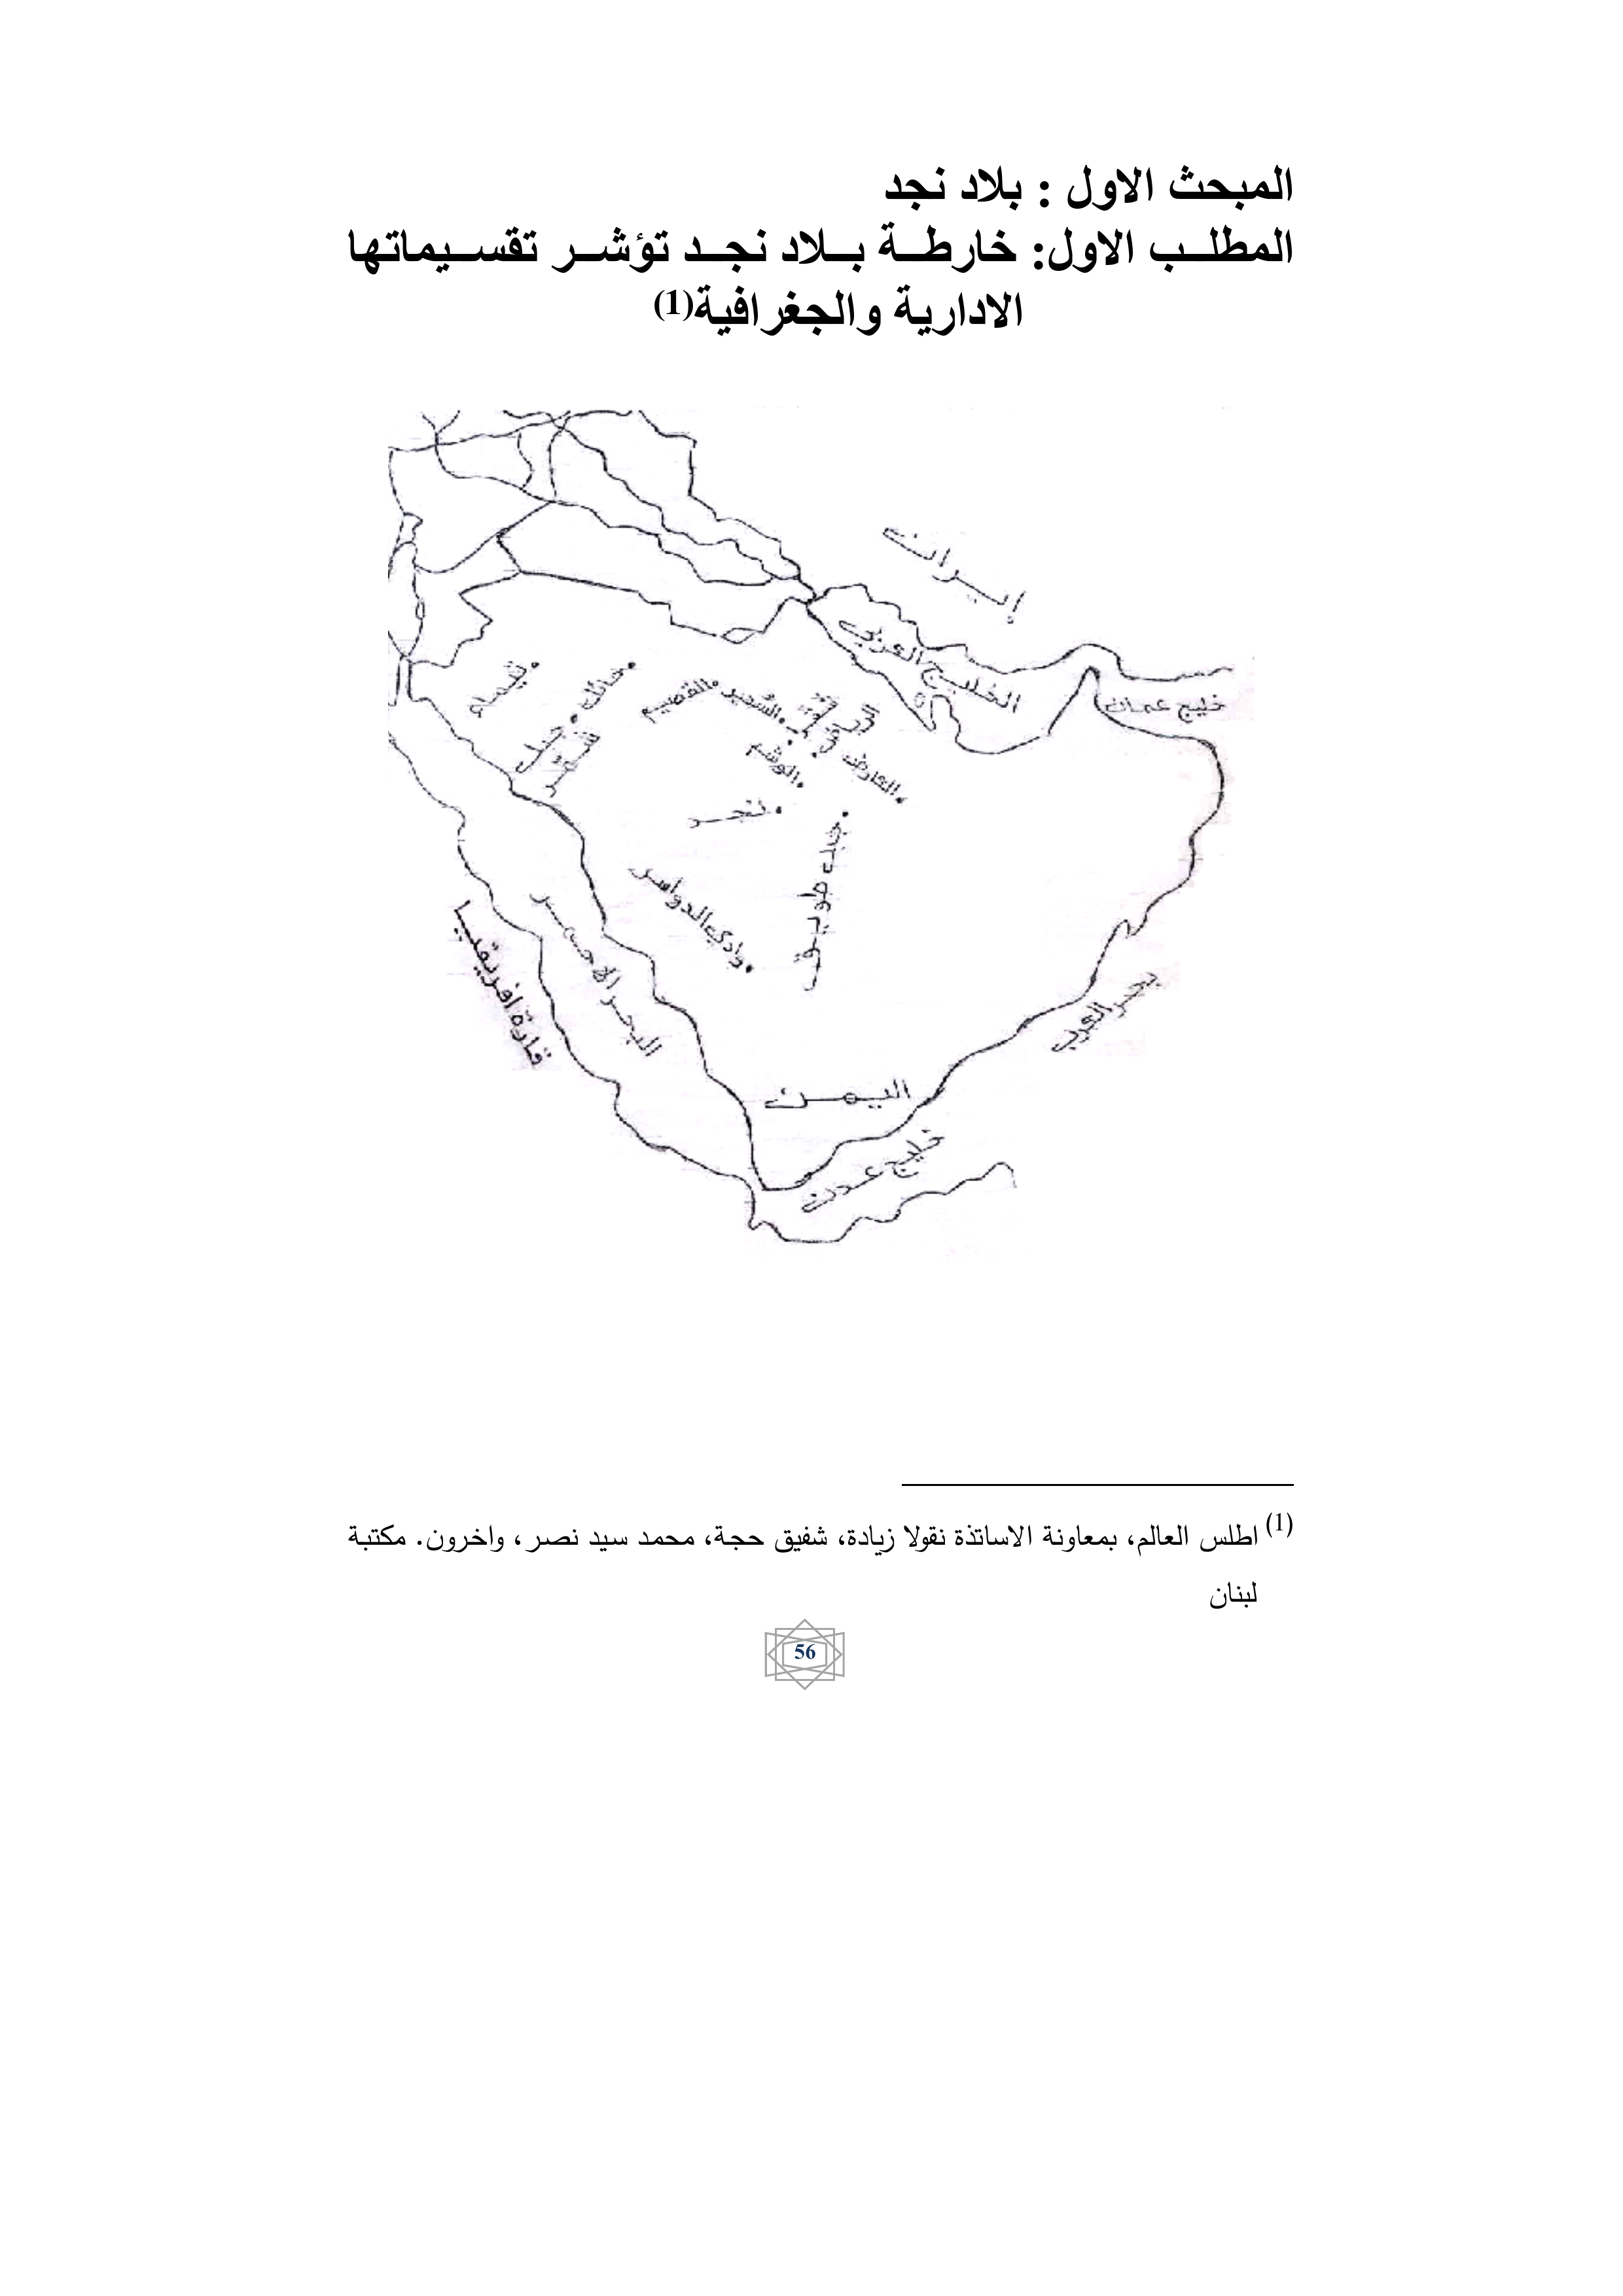 المبحث الاول : بلاد نجد
المطلب الاول: خارطة بلاد نجد تؤشر تقسيماتها
الادارية والجغرافية(1)
إيران
الخليج العربي
خليج عمان
تيماء
حائل
جبل شمر
القصيم
السدير
العارض
الوشم
نجد
جبل طويق
وادي الدواسر
البحر الاحمر
قارة افريقيا
بحر العرب
اليمن
خليج عدن
(1) اطلس العالم، بمعاونة الاساتذة نقولا زيادة، شفيق حجة، محمد سيد نصر، واخرون. مكتبة
لبنان
56